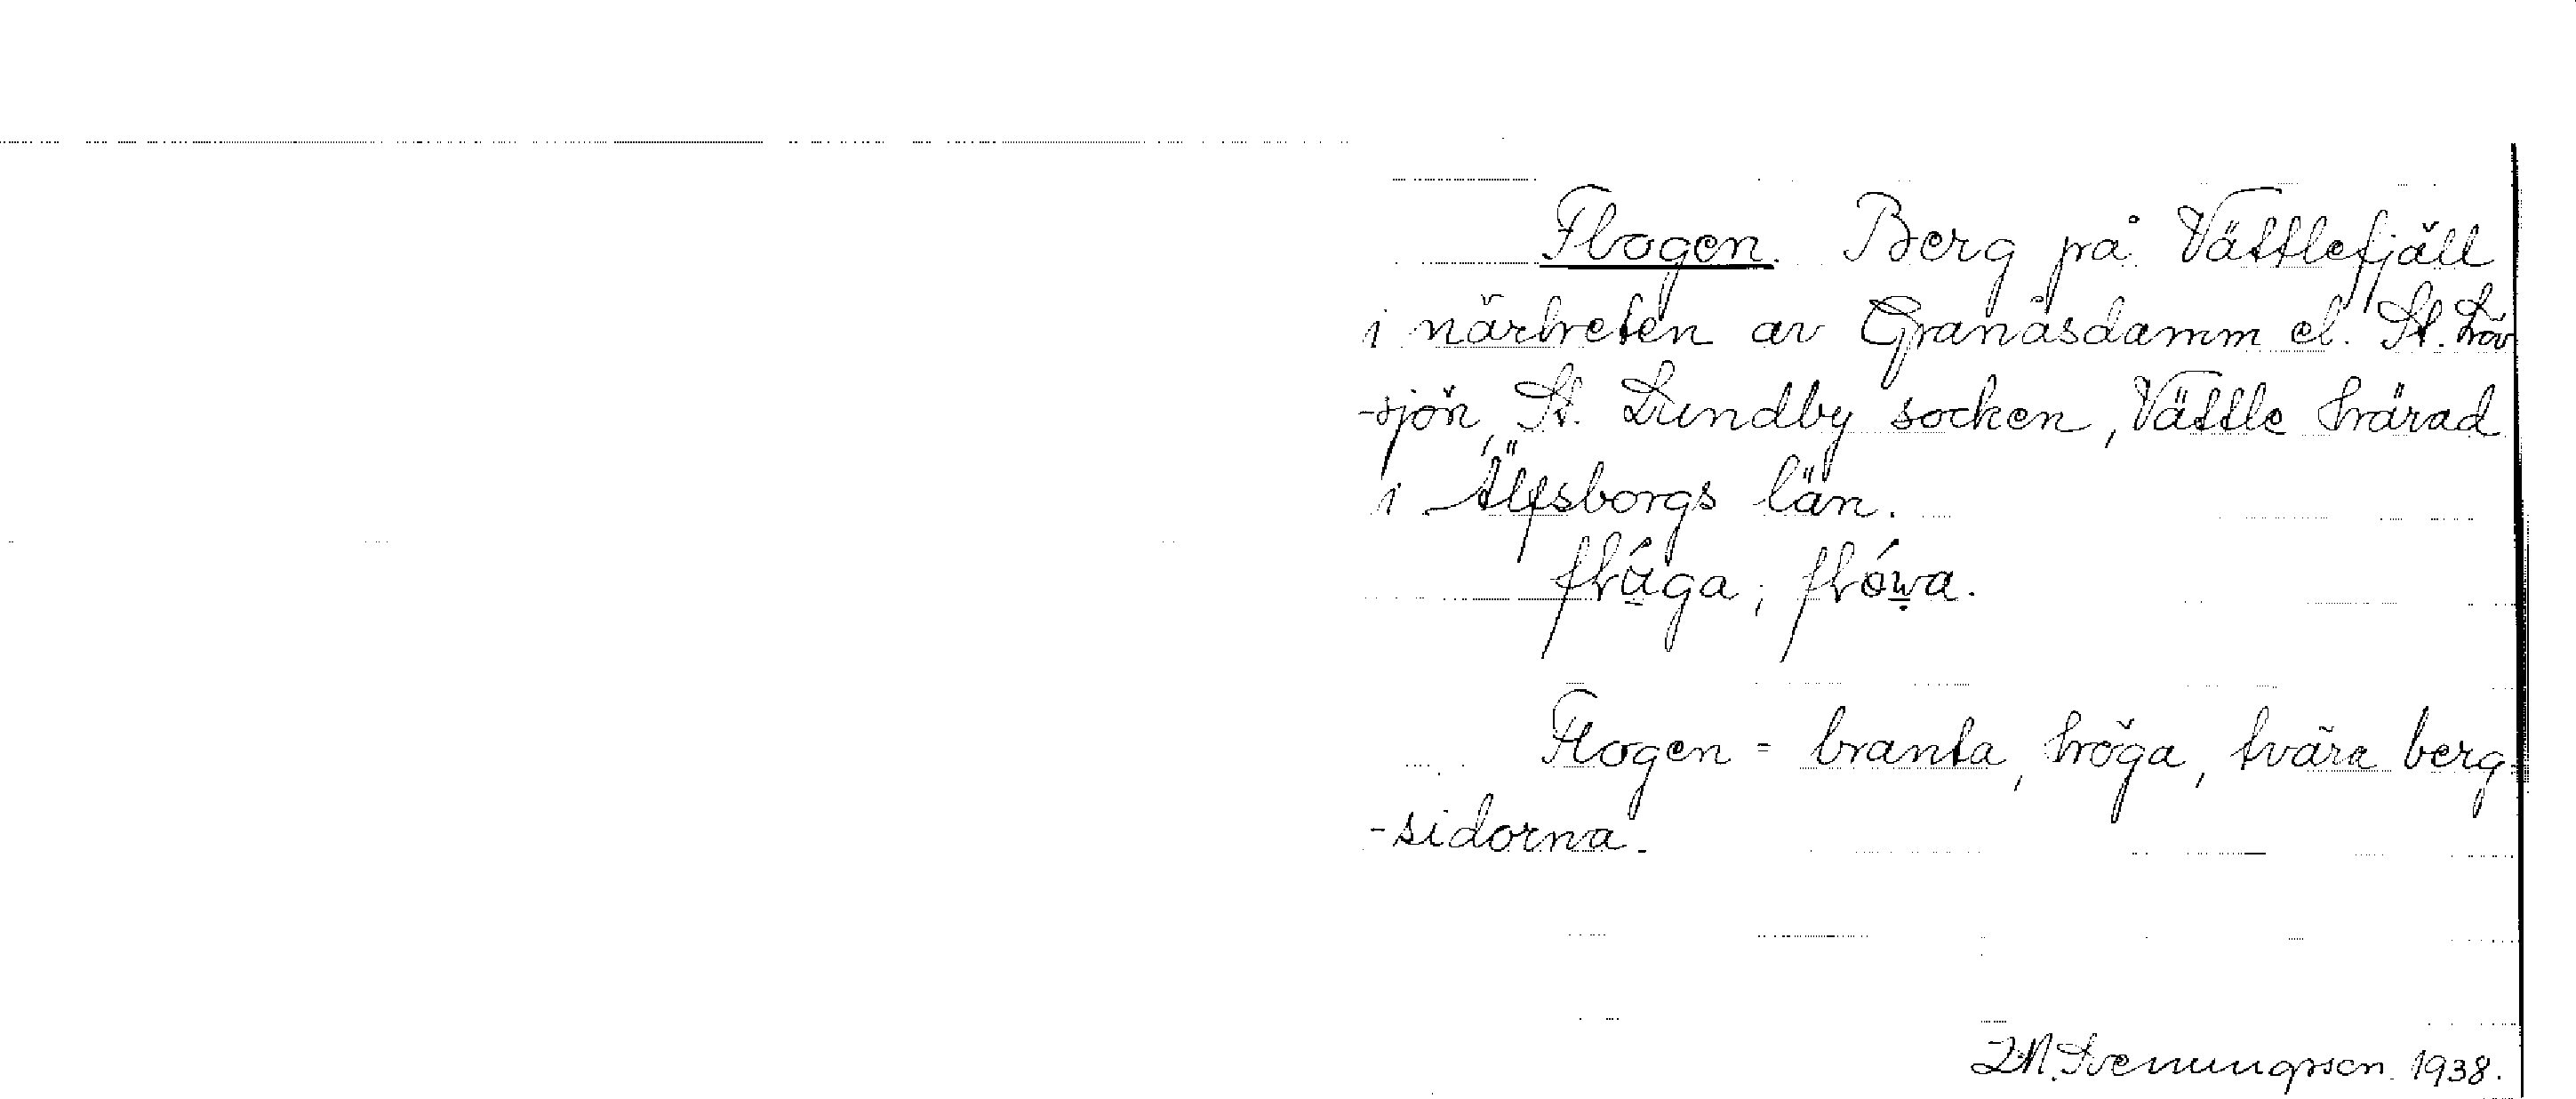 Flogen. Berg på Vättlefjäll
i närheten av Granåsdamm el. St. Häv
-sjön, St. Lundby socken, Vättle härad
i Älfsborgs län.
Flogen = branta, höga, tvära berg-
-sidorna.
1938.